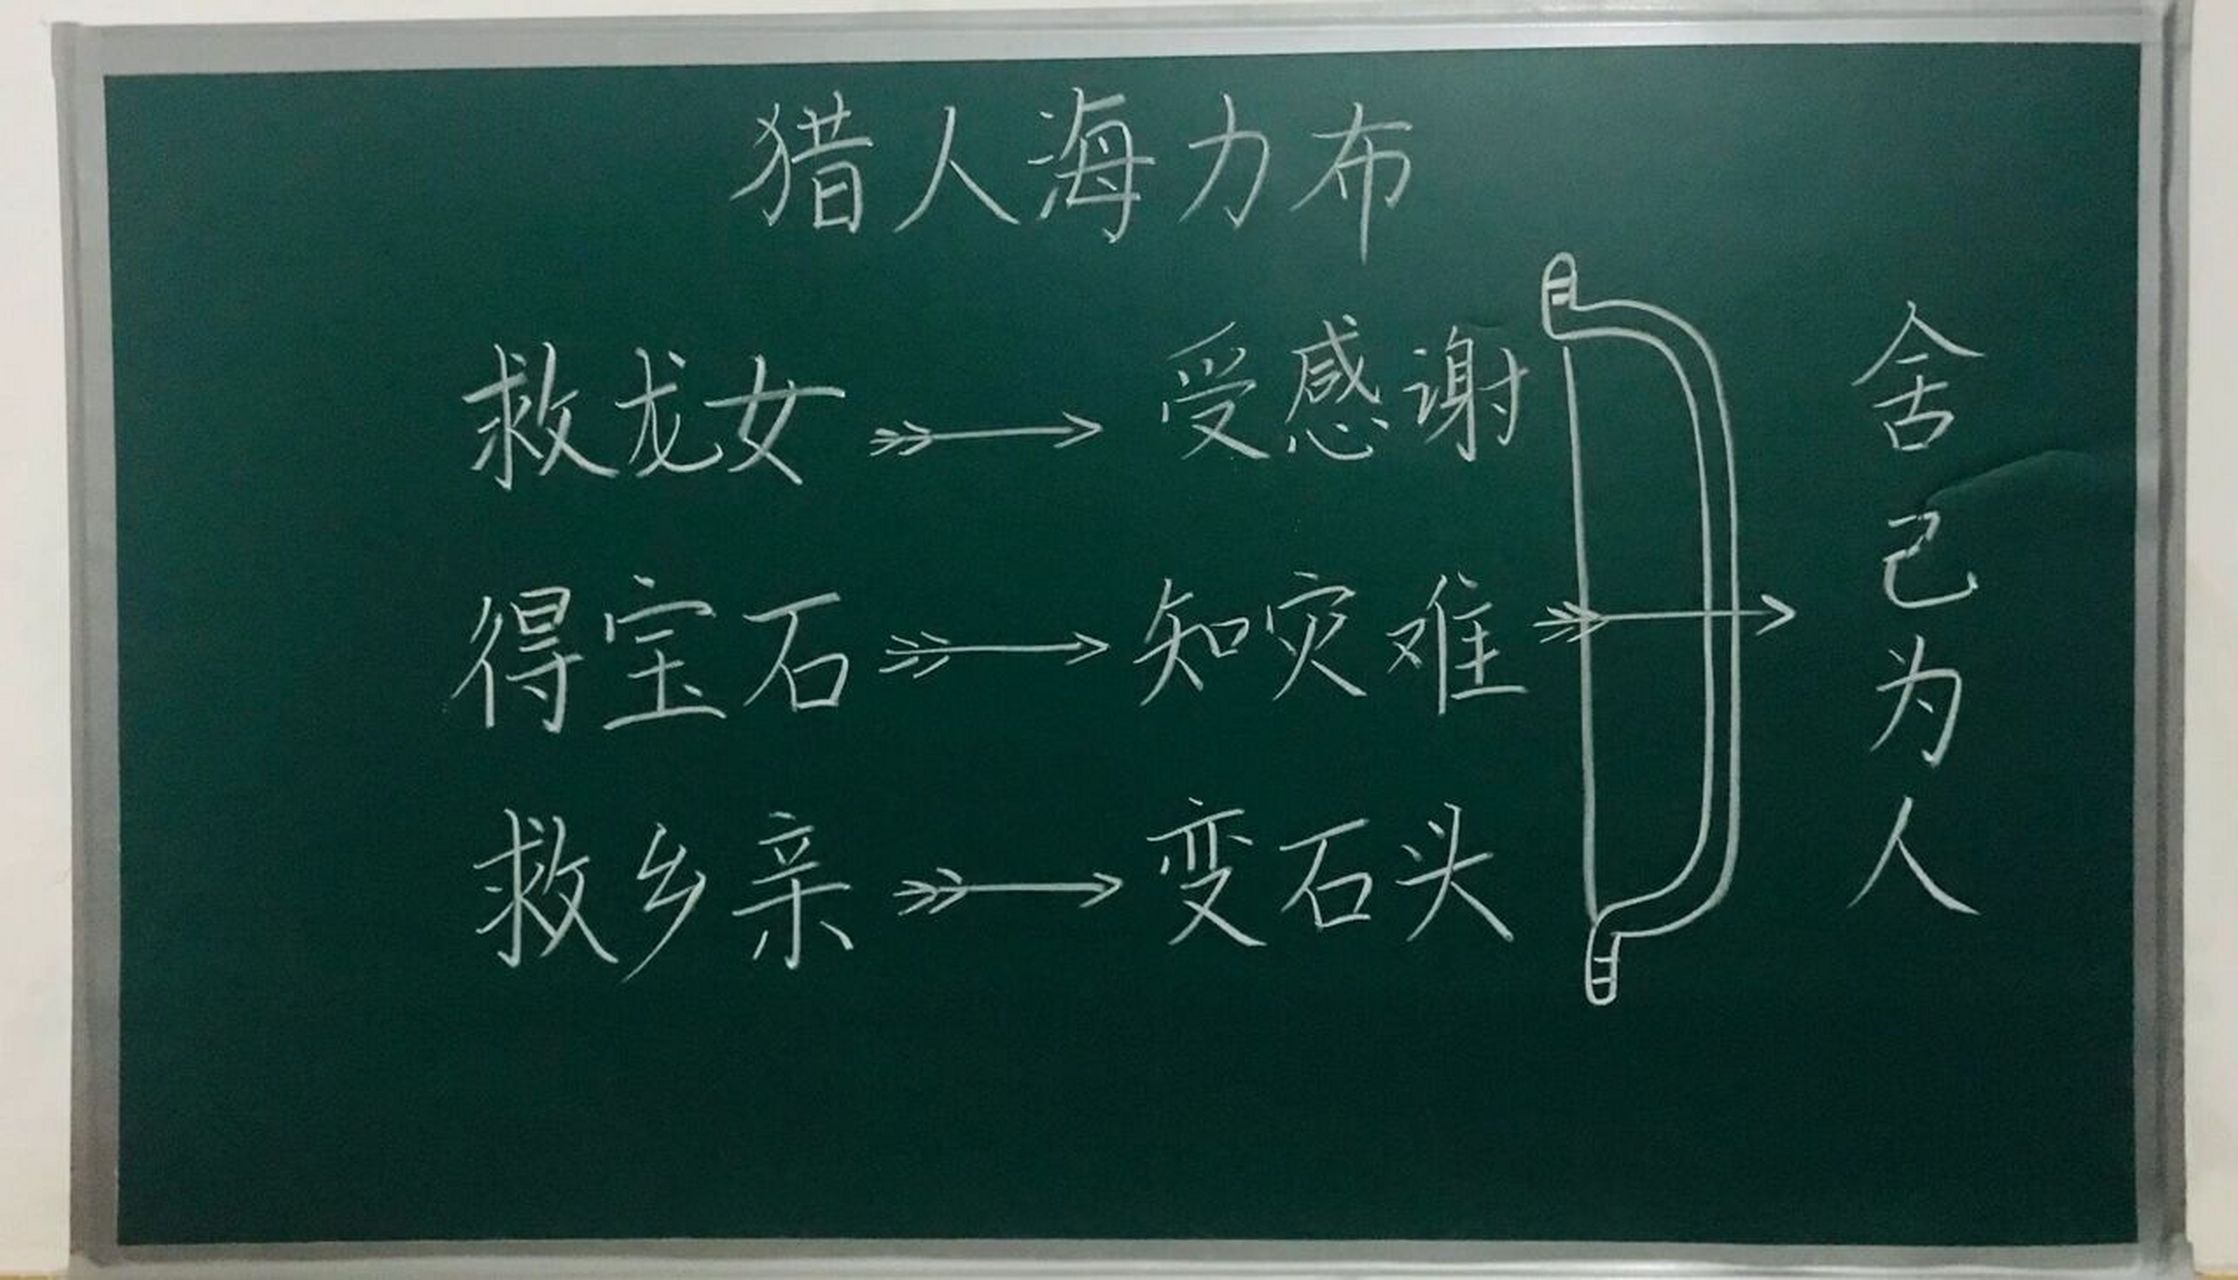 猎人海力布
救龙女 受感谢
得宝石 知灾难
救乡亲 变石头
舍己为人